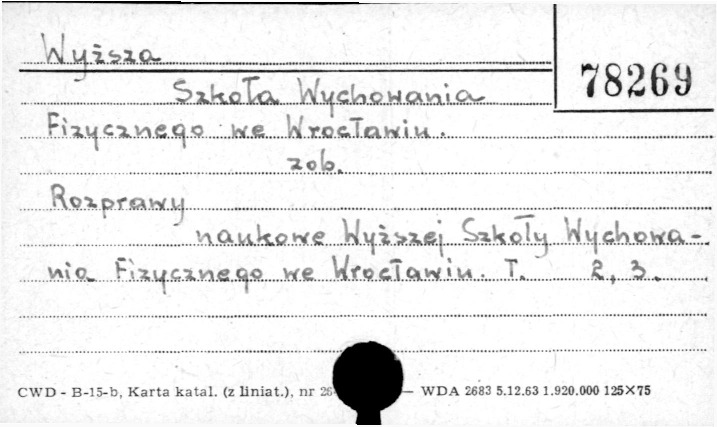 Wyższa
78269
Szkoła Wychowania
Fizycznego we Wrocławiu.
zob.
Rozprawy
naukowe Wyższej Szkoły Wychowa-
nia Fizycznego we Wrocławiu. T. 2, 3.
CWD - B-15-b, Karta katal. (z liniat.), nr — WDA 2683 5.12.63 1.920.000 125X75